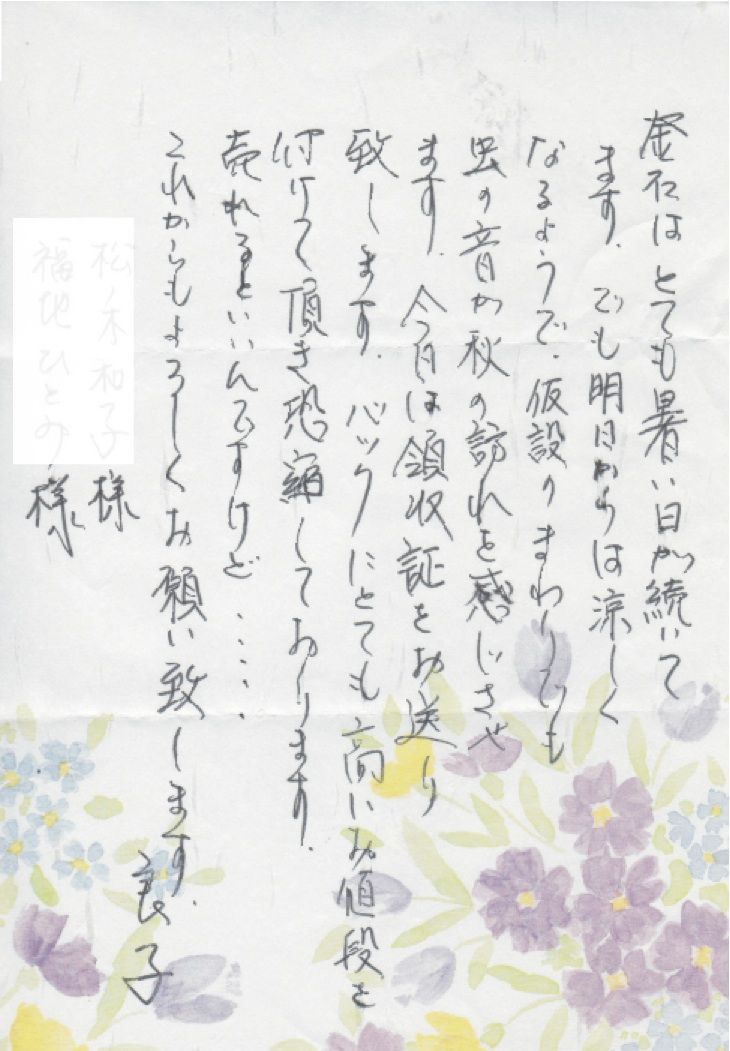 釜石はとても暑い日が続いて
ます。でも明日からは涼しく
なるようで、仮設のまわりでも
虫の音が秋の訪れを感じさせ
ます。今日は領収証をお送り
致します。バックにとても高いお値段を
付けて頂き恐縮しております。
売れるといいんですけど.....
これからもよろしくお願い致します。
良子
松ノ木和子様
福地ひとみ様